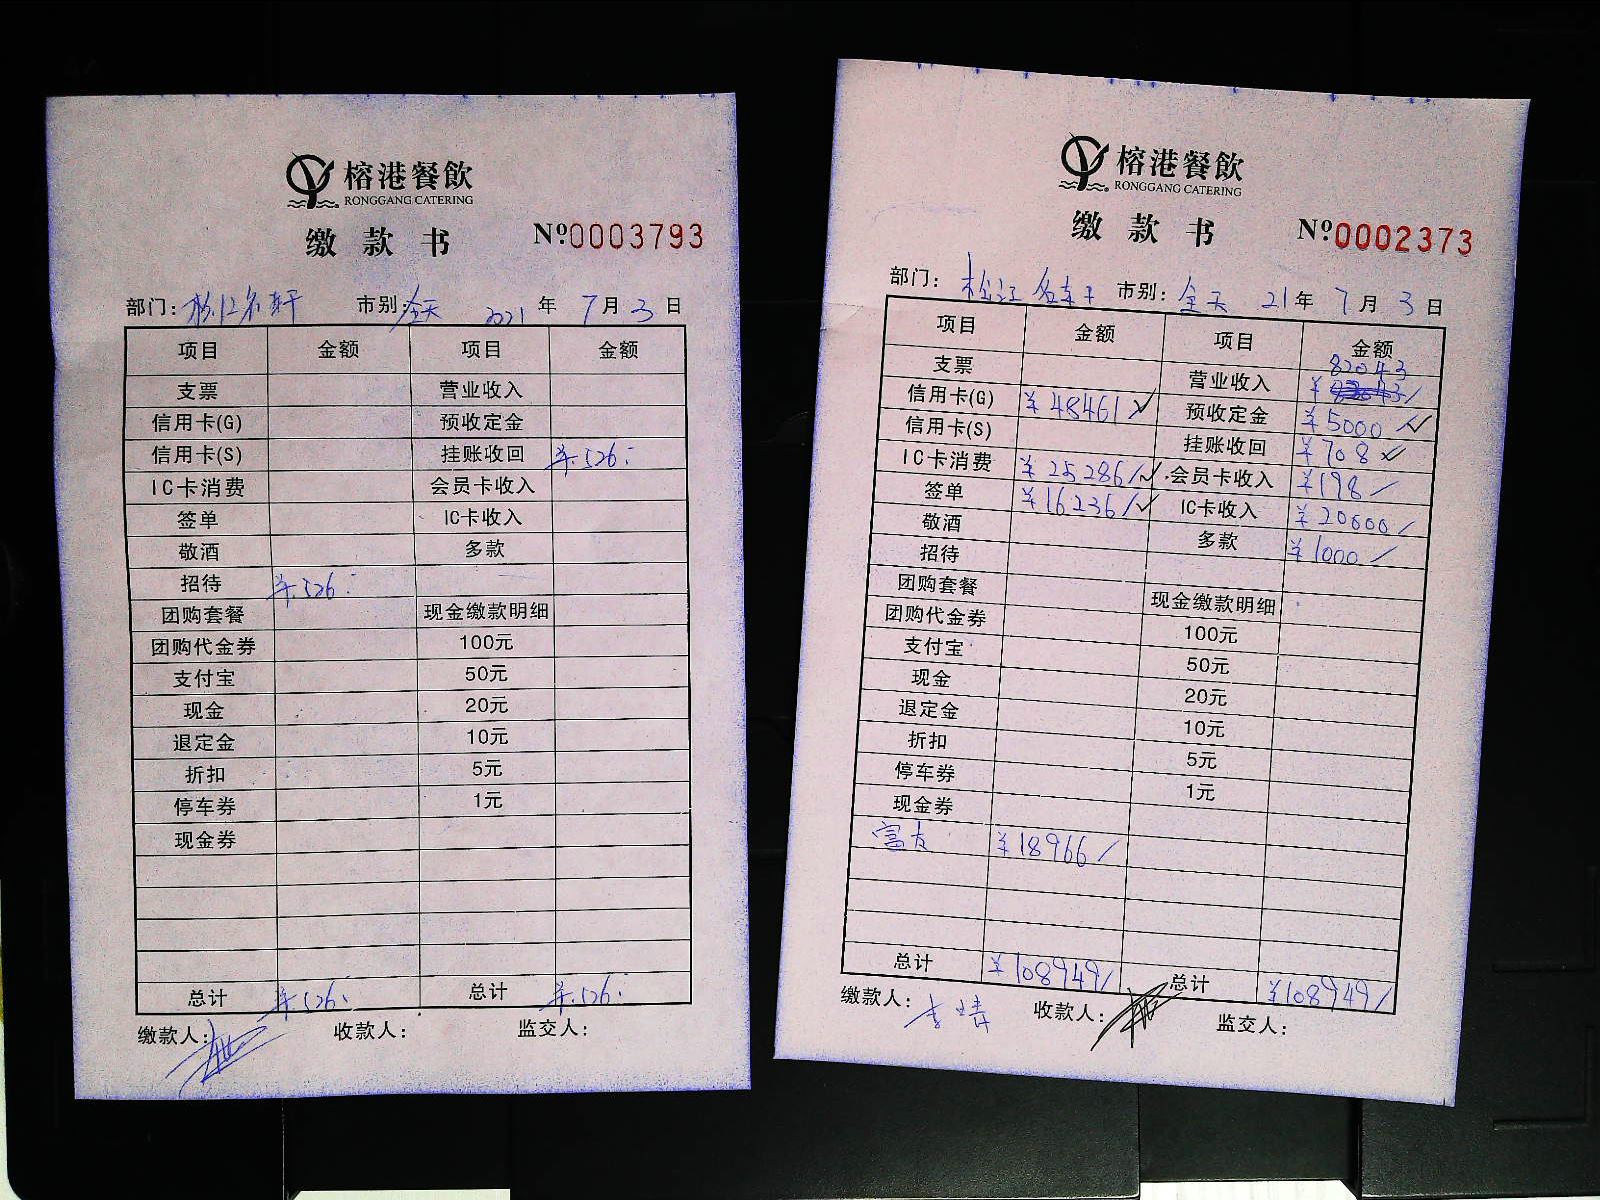 榕港餐飲
RONGGANG CATERING
缴款书 №0003793
部门: 松江名轩 市别: 全天 2021年7月3日
项目 金额 项目 金额
支票 营业收入
信用卡(G) 预收定金
信用卡(S) 挂账收回 ¥.526.
IC卡消费 会员卡收入
签单 IC卡收入
敬酒 多款
招待 ¥.526.
团购套餐 现金缴款明细
团购代金券 100元
支付宝 50元
现金 20元
退定金 10元
折扣 5元
停车券 1元
现金券
总计 ¥.526. 总计 ¥.526.
缴款人: 收款人: 监交人:
榕港餐飲
RONGGANG CATERING
缴款书 №0002373
部门: 松江名轩 市别: 全天 21年7月3日
项目 金额 项目 金额
支票 营业收入 ¥82043/
信用卡(G) ¥48461 预收定金 ¥5000
信用卡(S) 挂账收回 ¥708
IC卡消费 ¥25286/ 会员卡收入 ¥198/
签单 ¥16236/ IC卡收入 ¥20000/
敬酒 多款 ¥1000/
招待
团购套餐 现金缴款明细
团购代金券 100元
支付宝 50元
现金 20元
退定金 10元
折扣 5元
停车券 1元
现金券
富友 ¥18966/
总计 ¥108949/ 总计 ¥108949/
缴款人: 李婧 收款人: 监交人: